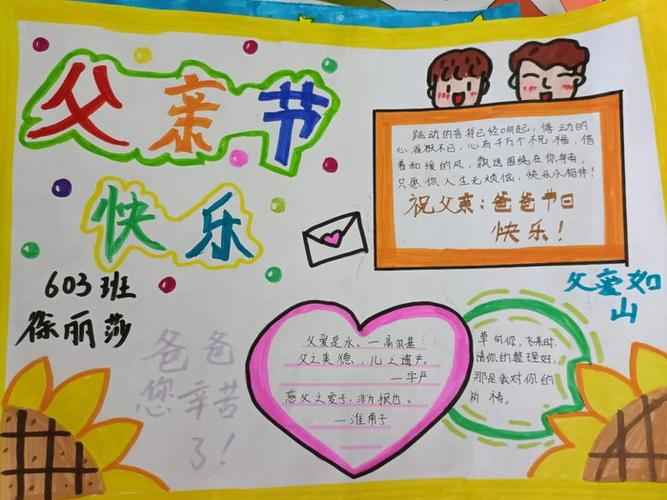 父亲节
快乐
603班
徐丽莎
跳动的音符已经响起,传动的
心夜夜不已,心有千万个祝福,借
着和缓的风,飘送围绕在你身旁,
只愿你人生无烦恼,快乐永相伴!
祝父亲:爸爸节日
快乐!
父爱如
山
爸爸
您辛苦
了!
父爱是水、一高尔基
父之美德,儿之遗产。
一字严
恐父之爱子,非为报也。
一淮南子
请你的整理好,
那是我对你的